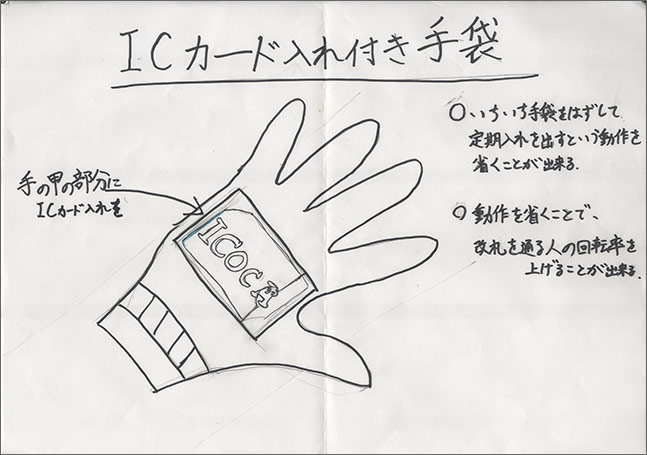 ICカード入れ付き手袋
○いちいち手袋をはずして
定期入れを出すという動作を
省くことが出来る。
手の甲の部分に
ICカード入れを
ICOC
○動作を省くことで、
改札を通る人の回転率を
上げることが出来る。